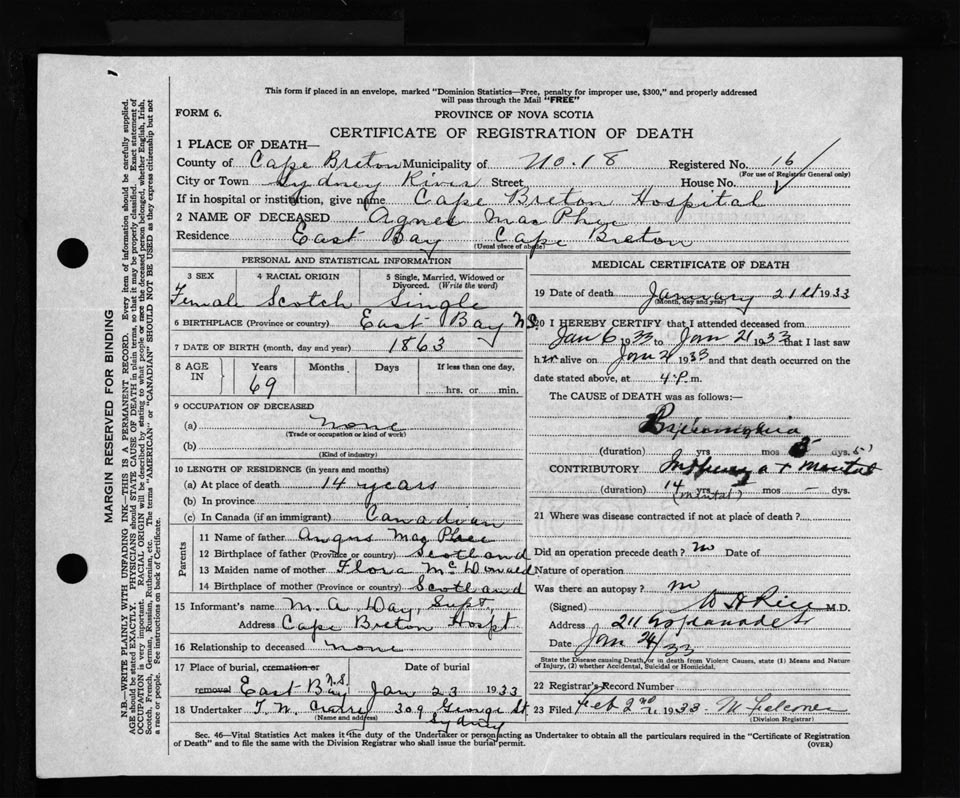 This form if placed in an envelope, marked "Dominion Statistics—Free, penalty for improper use, $300," and properly addressed
will pass through the Mail "FREE"
FORM 6.
PROVINCE OF NOVA SCOTIA
CERTIFICATE OF REGISTRATION OF DEATH
MARGIN RESERVED FOR BINDING
N.B.—WRITE PLAINLY WITH UNFADING INK—THIS IS A PERMANENT RECORD. Every item of information should be carefully supplied.
AGE should be stated EXACTLY. PHYSICIANS should STATE CAUSE OF DEATH in plain terms, so that it may be properly classified. Exact statement of
OCCUPATION is very important. RACIAL ORIGIN will be described by stating to what people or race the deceased person belonged, whether English, Irish,
Scotch, French, German, Russian, Ruthenian, etc. The terms "AMERICAN" or "CANADIAN" SHOULD NOT BE USED as they express citizenship but not
a race or people. See instructions on back of Certificate.
1 PLACE OF DEATH—
County of Cape Breton Municipality of No. 18 Registered No. 16
(For use of Registrar General only)
City or Town Sydney River Street House No.
If in hospital or institution, give name Cape Breton Hospital
2 NAME OF DECEASED Agnes MacPhee
Residence East Bay Cape Breton
(Usual place of abode)
PERSONAL AND STATISTICAL INFORMATION
3 SEX 4 RACIAL ORIGIN 5 Single, Married, Widowed or Divorced. (Write the word)
Female Scotch Single
6 BIRTHPLACE (Province or country) East Bay N.S.
7 DATE OF BIRTH (month, day and year) 1863
8 AGE IN Years Months Days If less than one day,
69 hrs. or min.
9 OCCUPATION OF DECEASED
(a) none
(Trade or occupation or kind of work)
(b)
(Kind of industry)
10 LENGTH OF RESIDENCE (in years and months)
(a) At place of death 14 years
(b) In province
(c) In Canada (if an immigrant) Canadian
Parents
11 Name of father Angus MacPhee
12 Birthplace of father (Province or country) Scotland
13 Maiden name of mother Flora McDonald
14 Birthplace of mother (Province or country) Scotland
15 Informant's name M. A. Day, Supt.
Address Cape Breton Hospt.
16 Relationship to deceased none
17 Place of burial, cremation or Date of burial
removal East Bay N.S. Jan 23 1933
18 Undertaker T. W. 309 George St.
(Name and address) Sydney
MEDICAL CERTIFICATE OF DEATH
19 Date of death January 21st 1933
(Month, day and year)
20 I HEREBY CERTIFY that I attended deceased from
Jan 6 1933 to Jan 21 1933 that I last saw
her alive on Jan 21 1933 and that death occurred on the
date stated above, at 4 P. m.
The CAUSE of DEATH was as follows:—
(duration) yrs mos 5 dys.
CONTRIBUTORY
(duration) 14 yrs mos — dys.
21 Where was disease contracted if not at place of death?
Did an operation precede death? no Date of
Nature of operation
Was there an autopsy? no
(Signed) W H Rice M.D.
Address 211 Esplanade
Date Jan 24/33
State the Disease causing Death, or in death from Violent Causes, state (1) Means and Nature
of Injury, (2) whether Accidental, Suicidal or Homicidal.
22 Registrar's Record Number
23 Filed Feb 2nd 1933
(Division Registrar)
Sec. 46—Vital Statistics Act makes it the duty of the Undertaker or person acting as Undertaker to obtain all the particulars required in the "Certificate of Registration
of Death" and to file the same with the Division Registrar who shall issue the burial permit. (OVER)